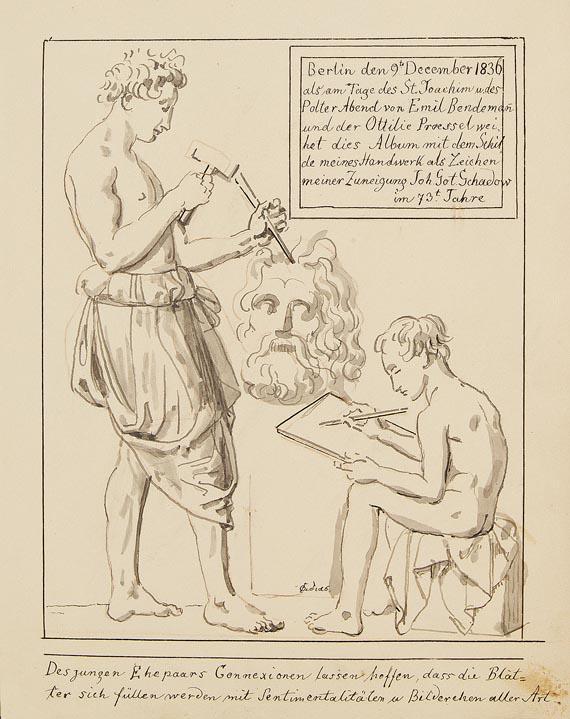 Berlin den 9t December 1836
als am Tage des St. Joachim u. des
Polter Abend von Emil Bendeman
und der Ottilie Proessel wei,
het dies Album mit dem Schil
de meines Handwerk als Zeichen
meiner Zuneigung Joh Got Schadow
im 73t Jahre
Des jungen Ehepaars Connexionen lassen hoffen, dass die Blät=
ter sich füllen werden mit Sentimentalitäten, u Bilderchen aller Art